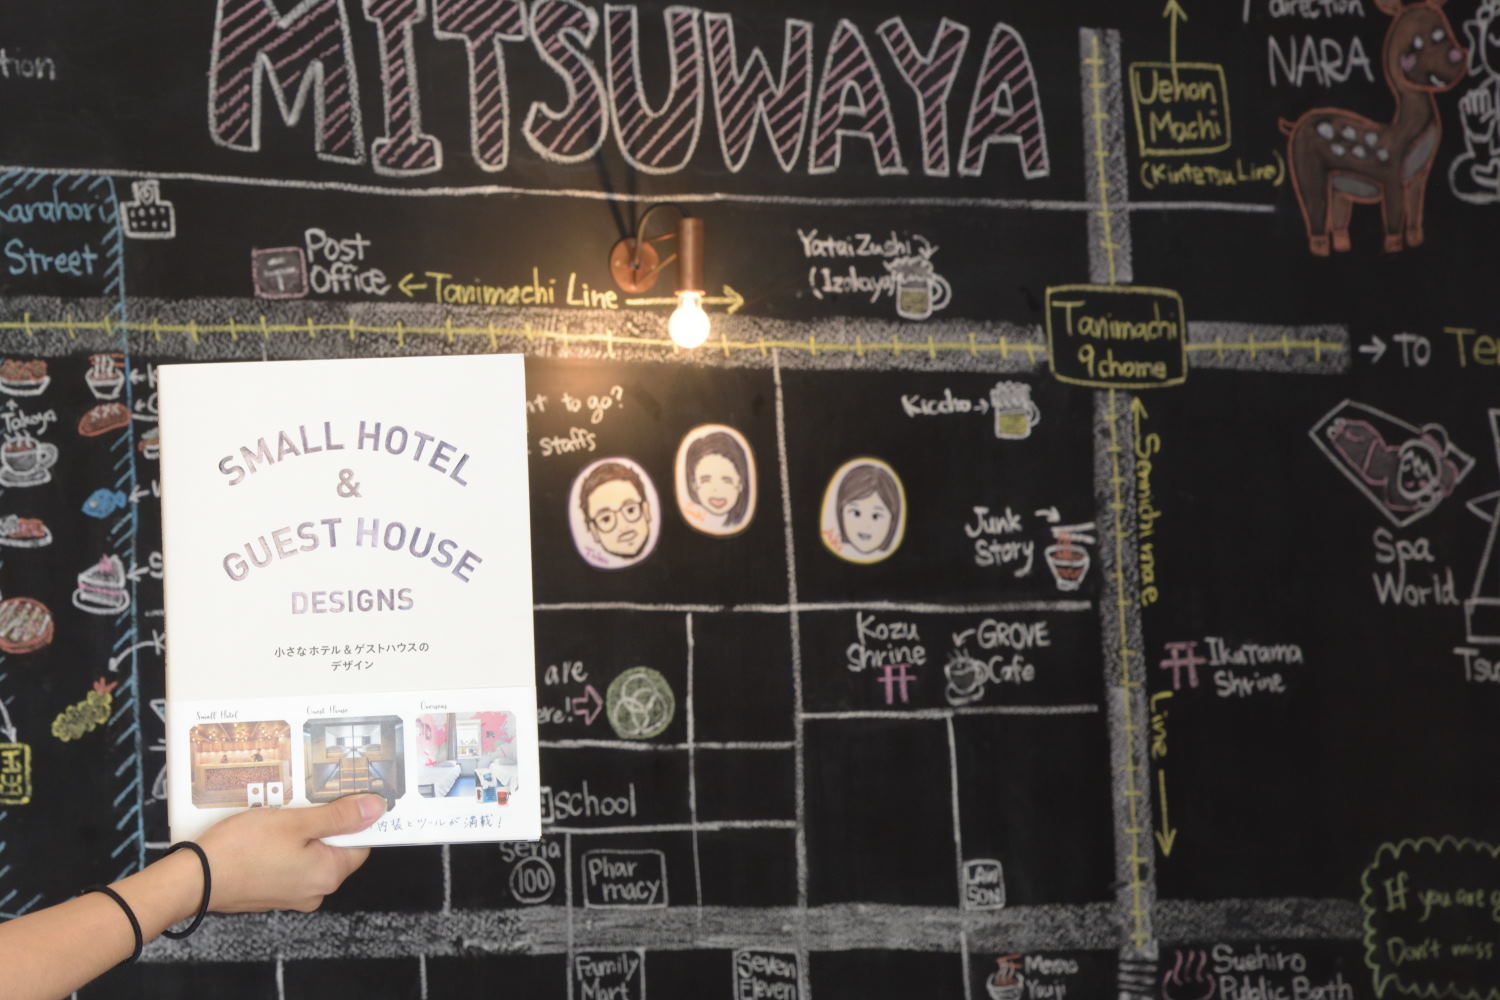 tion
MITSUWAYA
direction
NARA
Uehon
Machi
(Kintetsu Line)
Karahori
Street
Post
Office
← Tanimachi Line →
Yatai Zushi
(Izakaya)
Tanimachi
9 chome
→ TO Te
Takoya
t to go?
staffs
Kiccho →
Junk
Story
Sennichimae
Line
Spa
World
Tsu
SMALL HOTEL
&
GUEST HOUSE
DESIGNS
小さなホテル&ゲストハウスの
デザイン
Small Hotel
Guest House
Overseas
内装とツールが満載!
are
ere!
Kozu
Shrine
GROVE
Cafe
Ikutama
Shrine
School
Seria
100
Phar
macy
LAW
SON
Family
Mart
Seven
Eleven
Suehiro
Public Bath
If you are g
Don't miss